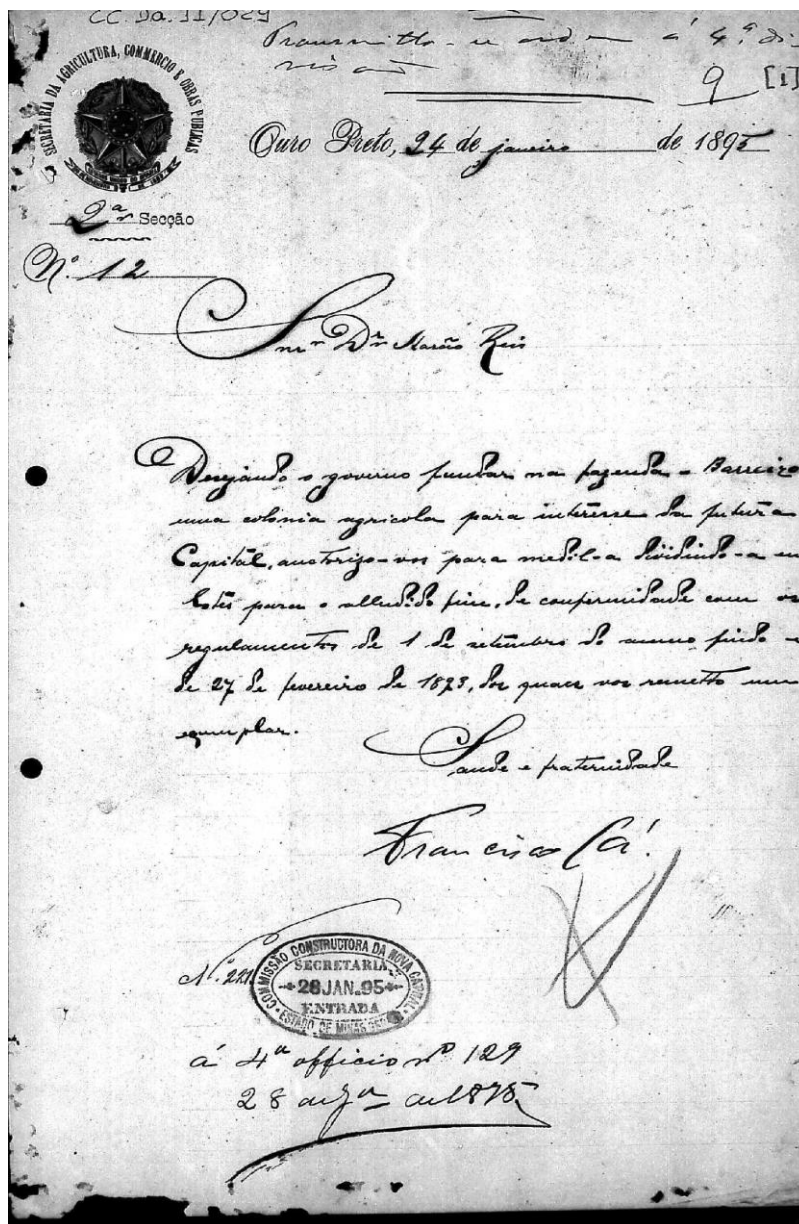 CC. Da. 11/029
Transmitta-se ordem á 4ª di-
visão
9 [1]
SECRETARIA DA AGRICULTURA, COMMERCIO E OBRAS PUBLICAS
Ouro Preto, 24 de janeiro de 1895
2ª Secção
Nº 12
Snr. Dr. Aarão Reis
Desejando o governo fundar na fazenda - Barreiro
uma colonia agricola para interesse da futura
Capital, auctorizo-vos para medil-a dividindo-a em
lotes para o alludido fim, de conformidade com os
regulamentos de 1 de setembro do anno findo e
de 27 de fevereiro de 1873, dos quaes vos remetto um
exemplar.
Saude e fraternidade
Francisco Sá.
Nº 221
COMMISSÃO CONSTRUCTORA DA NOVA CAPITAL
SECRETARIA
28 JAN. 95
ENTRADA
ESTADO DE MINAS
á 4ª officio nº 129
28 de Jº de 1895